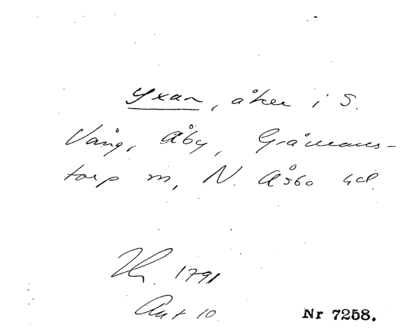 Yxan, åker i S.
Vång, Åby, Gråmans-
torp sn, N. Åsbo hd.
Hs. 1791
Akt 10
Nr 7258.